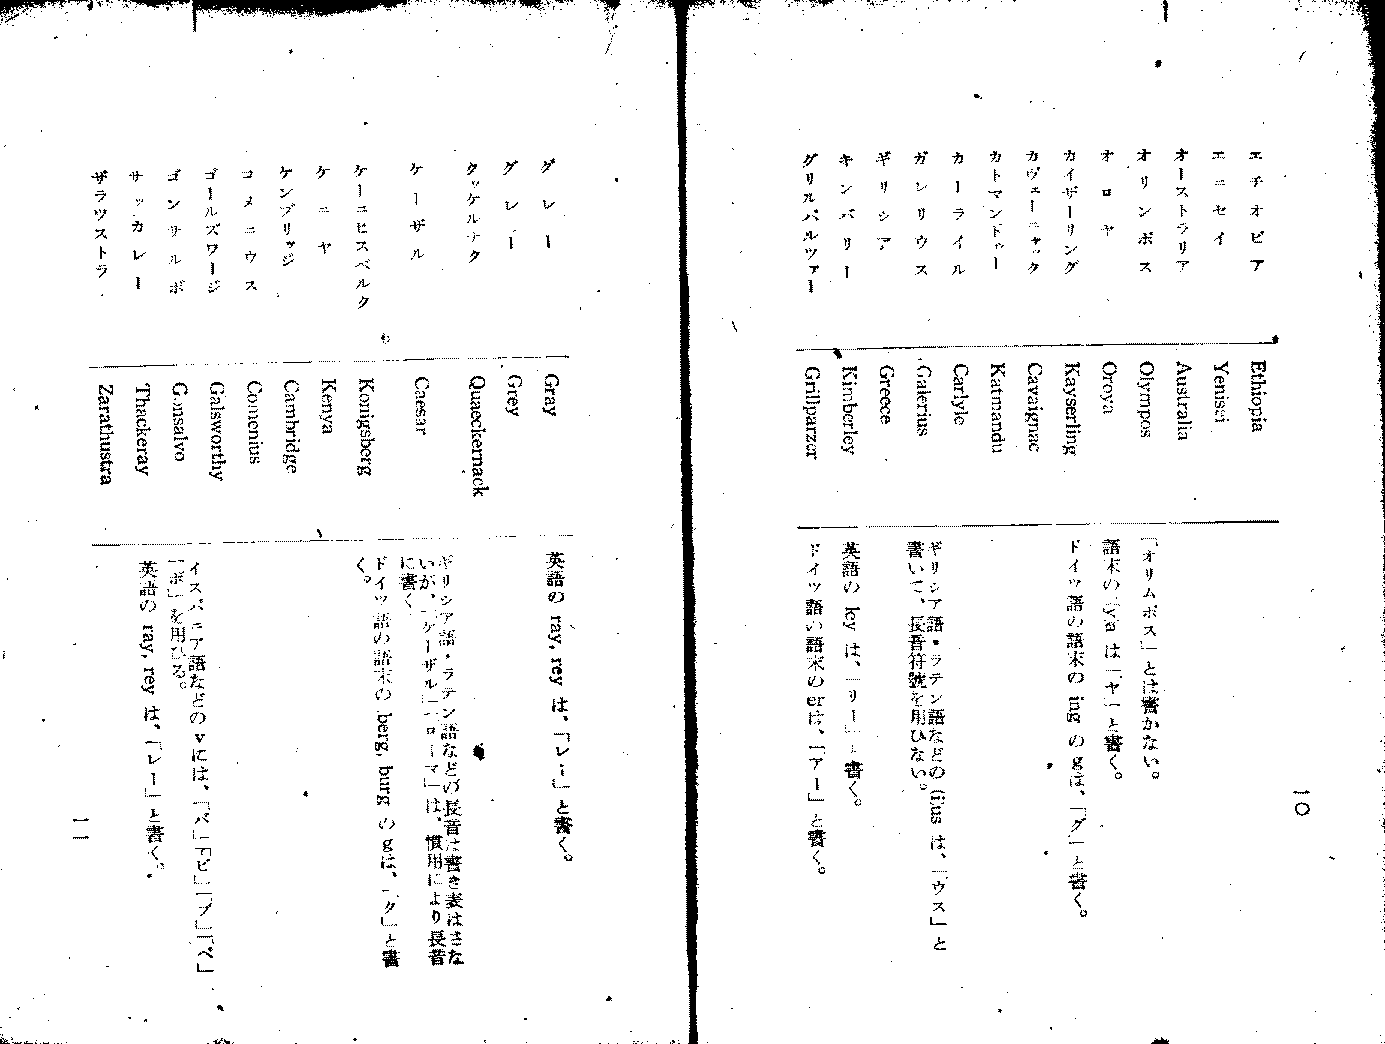 エチオピア Ethiopia
エニセイ Yenissi
オーストラリア Australia
オリンポス Olympos 「オリムポス」とは書かない。
オロヤ Oroya 語末の ya は「ヤ」と書く。
カイザーリング Kayserling ドイツ語の語末の ing の gは、「グ」と書く。
カヴェーニャック Cavaignac
カトマンドゥー Katmandu
カーライル Carlyle
ガレリウス Galerius ギリシア語・ラテン語などの (i)us は、「ウス」と
書いて、長音符號を用ひない。
ギリシア Greece
キンバリー Kimberley 英語の ley は、「リー」と書く。
グリルパルツァー Grillparzer ドイツ語の語末の erは、「アー」と書く。
一〇
グレー Gray 英語の ray, rey は、「レー」と書く。
グレー Grey
クッケルナク Quaeckernack
ケーザル Caesar ギリシア語・ラテン語などの長音は書き表はさな
いが、「ケーザル」「ローマ」は、慣用により長音
に書く。
ケーニヒスベルク Konigsberg ドイツ語の語末の berg, burg の gは、「ク」と書
く。
ケニヤ Kenya
ケンブリッジ Cambridge
コメニウス Comenius
ゴールズワージ Galsworthy
ゴンサルボ Gonsalvo イスパニア語などの vには、「バ」「ビ」「ブ」「ベ」
「ボ」を用ひる。
サッカレー Thackeray 英語の ray, rey は、「レー」と書く。
ザラツストラ Zarathustra
一一